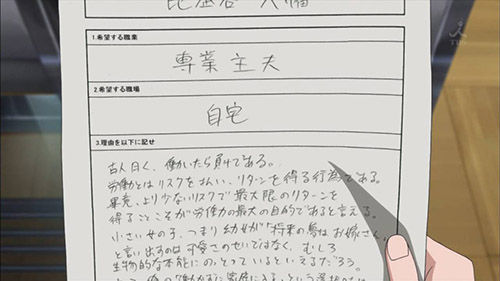 比企谷 八幡
TBS
1.希望する職業
専業主夫
2.希望する職場
自宅
3.理由を以下に記せ
古人曰く、働いたら負けである。
労働とはリスクを払い、リターンを得る行為である。
畢竟、より少ないリスクで最大限のリターンを
得ることこそが労働の最大の目的であると言える。
小さい女の子、つまり幼女が「将来の夢はお嫁さん」
と言い出すのは可愛さのせいではなく、むしろ
生物的な本能にのっとっているといえるだろう。